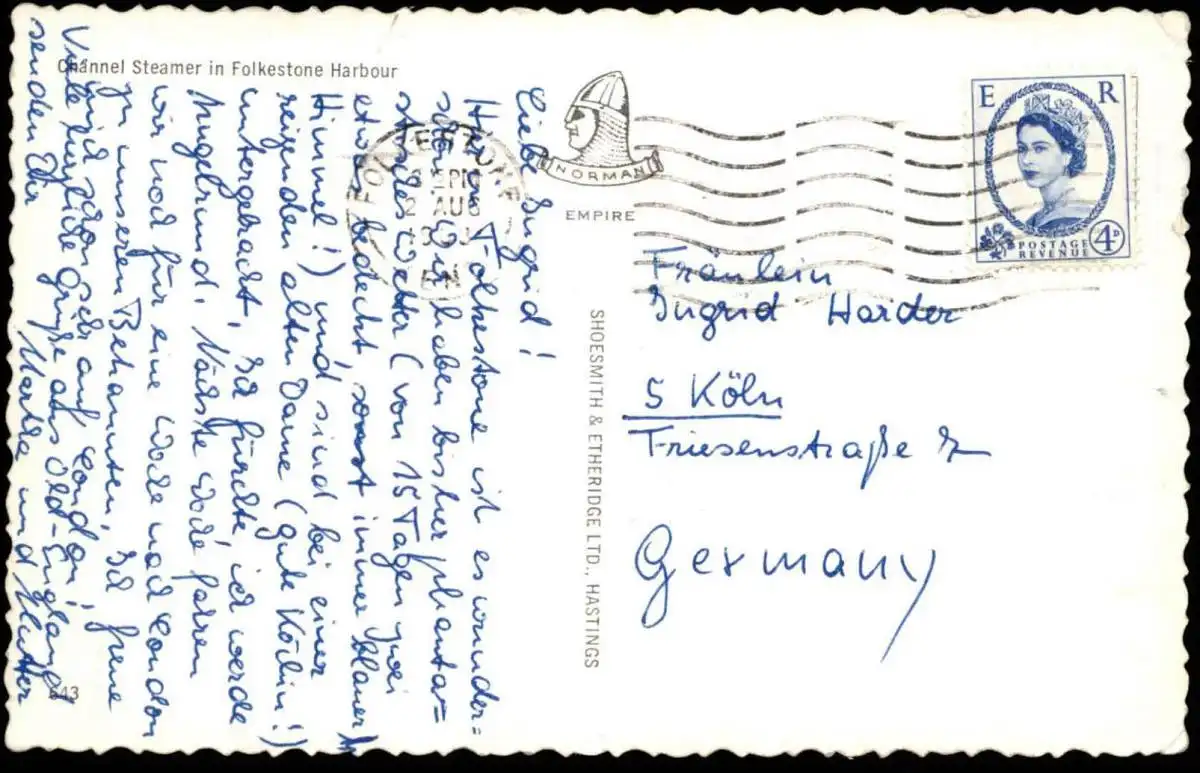 Channel Steamer in Folkestone Harbour
Liebe Ingrid!
Hier in Folkestone ist es wunder=
schön. Wir haben bisher phantas=
tisches Wetter (von 15 Tagen zwei
etwas bedeckt, sonst immer blauer
Himmel!) und sind bei einer
reizenden alten Dame (gute Köchin!)
untergebracht, Ich fürchte, ich werde
kugelrund. Nächste Woche fahren
wir noch für eine Woche nach London
zu unseren Bekannten, Ich freue
mich schon sehr auf London!
Viele herzliche Grüße aus Old-England
senden Dir
und Mutter
643
SHOESMITH & ETHERIDGE LTD., HASTINGS
FOLKESTONE
AUG
NORMAN
EMPIRE
E R
POSTAGE
REVENUE
4D
Fräulein
Ingrid Harder
5 Köln
Friesenstraße
Germany